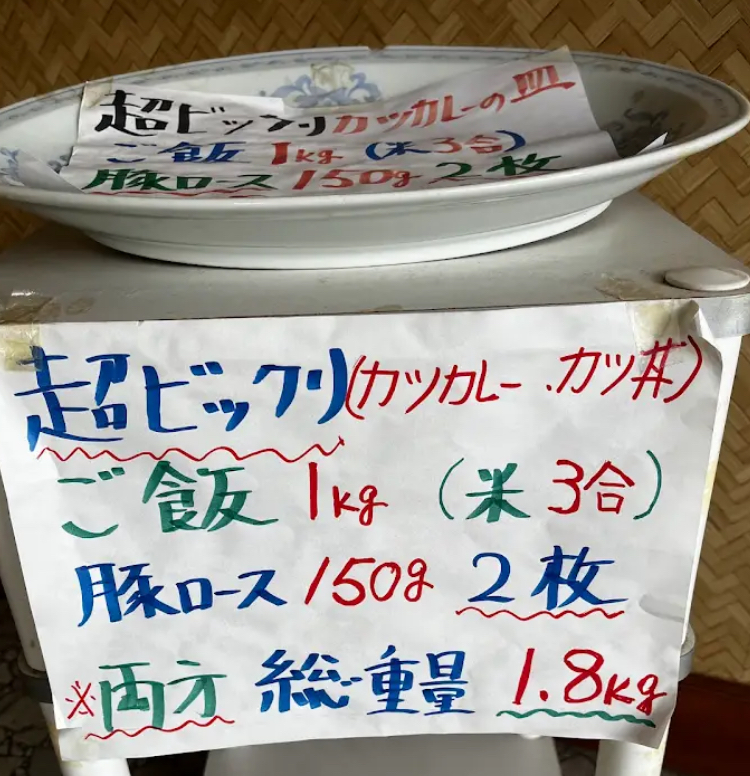 超ビックリカツカレーの皿
ご飯 1kg (米3合)
豚ロース 150g 2枚
超ビックリ(カツカレー、カツ丼)
ご飯 1kg (米3合)
豚ロース 150g 2枚
※両方 総重量 1.8kg